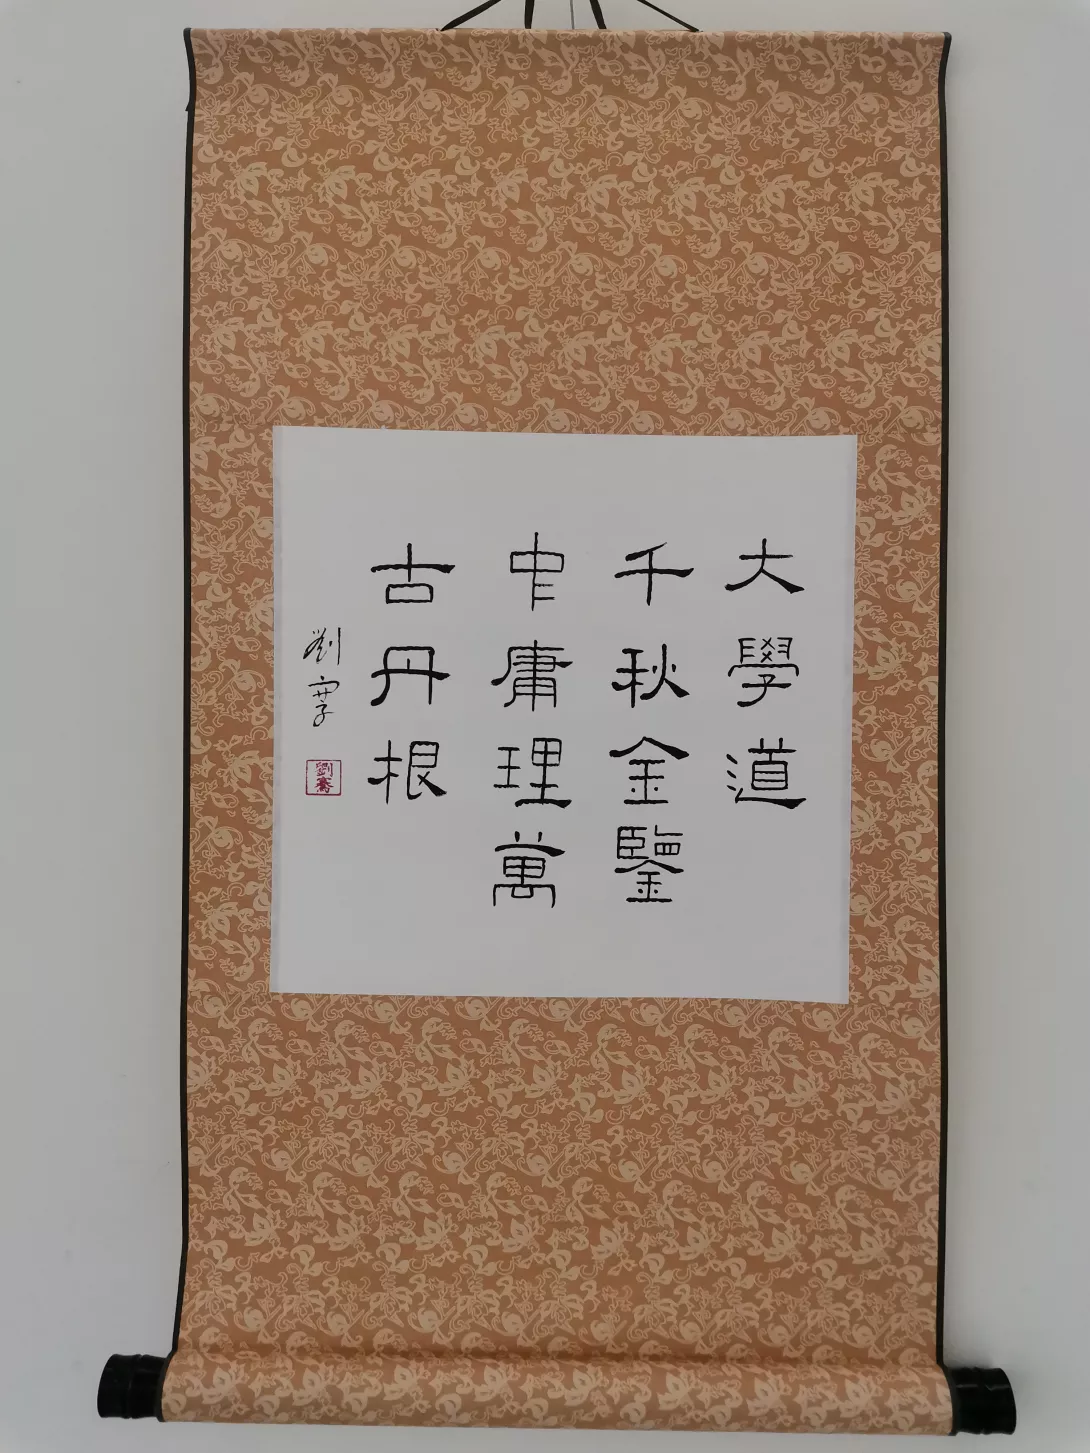 大學道
千秋金鑒
中庸理萬
古丹根
劉
劉騫